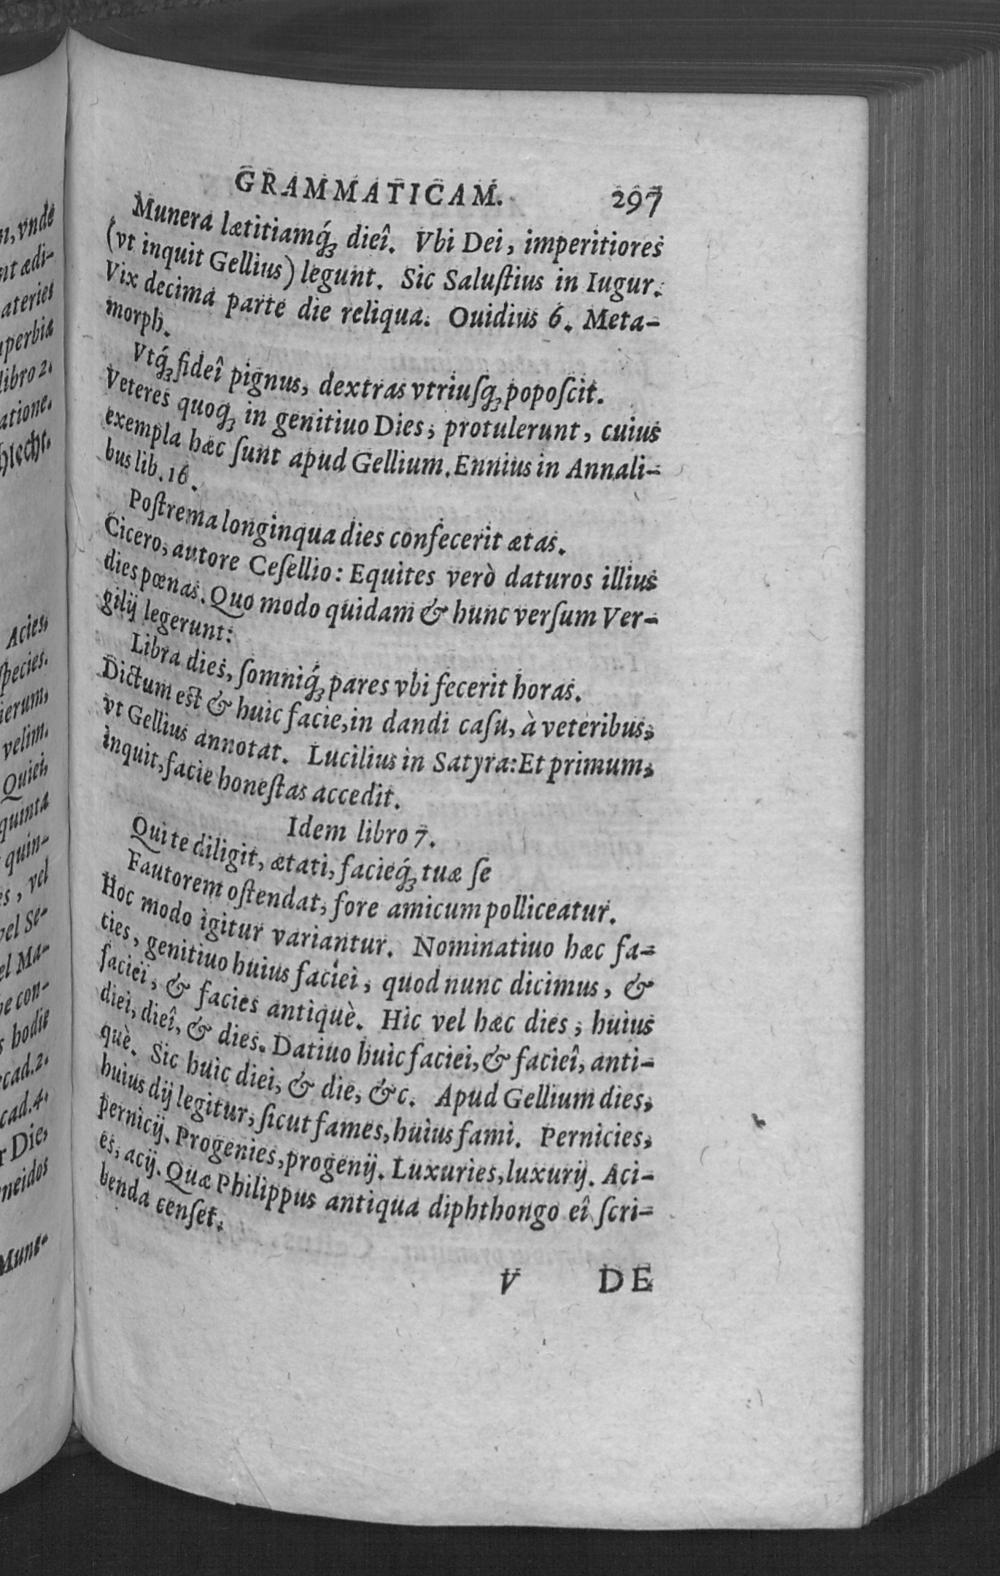 n, vnde
nt ædi-
ateries
perbia
libro 2.
atione.
Acies,
species.
ierum,
velim.
Quiei,
quinta
quin-
es, vel
vel Se-
el Ma-
ve con-
s hodie
cad. 2.
cad. 4.
r Die,
neidos
Mune-
GRAMMATICAM. 297
Munera lætitiamq́ꝫ dieî. Vbi Dei, imperitiores
(vt inquit Gellius) legunt. Sic Saluſtius in Iugur.
Vix decima parte die reliqua. Ouidius 6. Meta-
morph.
Vtq́ꝫ fideî pignus, dextras vtriuſqꝫ popoſcit.
Veteres quoqꝫ in genitiuo Dies, protulerunt, cuius
exempla hæc ſunt apud Gellium. Ennius in Annali-
bus lib. 16.
Poſtrema longinqua dies confecerit ætas.
Cicero, autore Ceſellio: Equites verò daturos illius
dies pœnas. Quo modo quidam & hunc verſum Ver-
gilij legerunt:
Libra dies, ſomniq́ꝫ pares vbi fecerit horas.
Dictum eſt & huic facie, in dandi caſu, à veteribus,
vt Gellius annotat. Lucilius in Satyra: Et primum,
inquit, facie honeſtas accedit.
Idem libro 7.
Qui te diligit, ætati, facieq́ꝫ tuæ ſe
Fautorem oſtendat, fore amicum polliceatur.
Hoc modo igitur variantur. Nominatiuo hæc fa-
ties, genitiuo huius faciei, quod nunc dicimus, &
faciei, & facies antiquè. Hic vel hæc dies, huius
diei, dieî, & dies. Datiuo huic faciei, & facieî, anti-
què. Sic huic diei, & die, &c. Apud Gellium dies,
huius dij legitur, ſicut fames, huius fami. Pernicies,
pernicij. Progenies, progenij. Luxuries, luxurij. Aci-
es, acij. Quæ Philippus antiqua diphthongo eî ſcri-
benda cenſet.
V DE